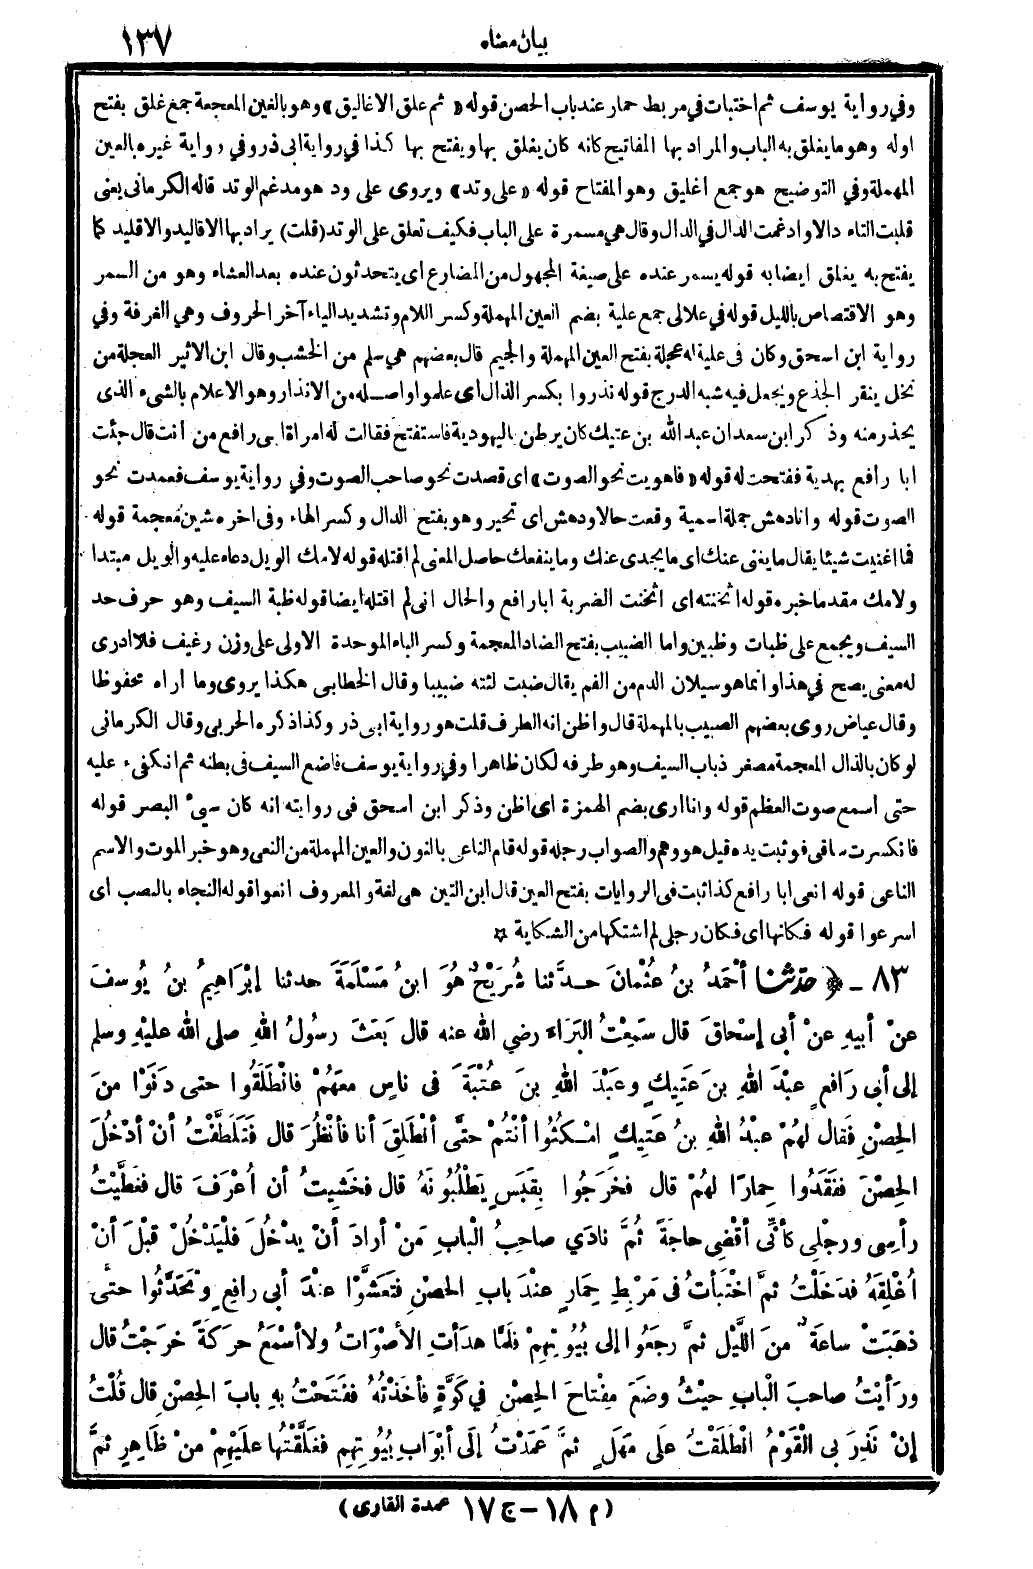 بيان معناه ١٣٧
وفي رواية يوسف ثم اختبات في مربط حمار عند باب الحصن قوله «ثم علق الاغاليق» وهو بالغين المعجمة جمع غلق بفتح
اوله وهو ما يغلق به الباب والمراد بها المفاتيح كانه كان يغلق بها ويفتح بها كذا في رواية ابى ذر وفي رواية غيره بالعين
المهملة وفي التوضيح هو جمع اغليق وهو المفتاح قوله «على وتد» ويروى على ود هو مدغم الوتد قاله الكرمانى يعنى
قلبت التاء دالا وادغمت الدال في الدال وقال هي مسمرة على الباب فكيف تعلق على الوتد (قلت) يراد بها الاقاليد والاقليد كما
يفتح به يغلق ايضا به قوله يسمر عنده على صيغة المجهول من المضارع اى يتحدثون عنده بعد العشاء وهو من السمر
وهو الاقتصاص بالليل قوله في علالى جمع علية بضم العين المهملة وكسر اللام وتشديد الياء آخر الحروف وهي الغرفة وفي
رواية ابن اسحق وكان فى علية له عجلة بفتح العين المهملة والجيم قال بعضهم هي سلم من الخشب وقال ابن الاثير العجلة من
نخل ينقر الجذع ويجعل فيه شبه الدرج قوله نذروا بكسر الذال اى علموا واصله من الانذار وهو الاعلام بالشىء الذى
يحذر منه وذكر ابن سعد ان عبد الله بن عتيك كان يرطن باليهودية فاستفتح فقالت له امراة ابى رافع من أنت قال جئت
ابا رافع بهدية ففتحت له قوله «فاهويت نحو الصوت» اى قصدت نحو صاحب الصوت وفي رواية يوسف فعمدت نحو
الصوت قوله وانا دهش جملة اسمية وقعت حالا ودهش اى تحير وهو بفتح الدال وكسر الهاء وفى اخره شين معجمة قوله
فما اغنيت شيئا يقال ما يغنى عنك اى ما يجدى عنك وما ينفعك حاصل المعنى لم اقتله قوله لامك الويل دعاء عليه والويل مبتدا
ولامك مقدما خبره قوله اثخنته اى اثخنت الضربة ابا رافع والحال انى لم اقتله ايضا قوله ظبة السيف وهو حرف حد
السيف ويجمع على ظبات وظبين واما الضبيب بفتح الضاد المعجمة وكسر الباء الموحدة الاولى على وزن رغيف فلا ادرى
له معنى يصح في هذا وانما هو سيلان الدم من الفم يقال ضبت لثته ضبيبا وقال الخطابى هكذا يروى وما اراه محفوظا
وقال عياض روى بعضهم الصبيب بالمهملة قال واظن انه الطرف قلت هو رواية ابى ذر وكذا ذكره الحربى وقال الكرمانى
لو كان بالذال المعجمة مصغر ذباب السيف وهو طرفه لكان ظاهرا وفي رواية يوسف فاضع السيف فى بطنه ثم انكفىء عليه
حتى اسمع صوت العظم قوله وانا ارى بضم الهمزة اى اظن وذكر ابن اسحق فى روايته انه كان سيئ البصر قوله
فانكسرت ساقى فوثبت يده قيل هو وهم والصواب رجله قوله قام الناعى بالنون والعين المهملة من النعى وهو خبر الموت والاسم
الناعى قوله انعى ابا رافع كذا ثبت فى الروايات بفتح العين قال ابن التين هى لغة والمعروف انعوا قوله النجاء بالنصب اى
اسرعوا قوله فكانها اى فكان رجلى لم اشتكها من الشكاية ✩
٨٣ ـ ﴿ حَدَّثنا أَحْمَدُ بنُ عُثْمَانَ حدَّثنا شُرَيْحٌ هُوَ ابنُ مَسْلَمَةَ حدثنا إبْرَاهِيمُ بنُ يُوسفَ
عنْ أبيهِ عنْ أبى إسْحاقَ قال سَمِعْتُ البَرَاءَ رضي الله عنه قال بَعَثَ رسُولُ اللهِ صلى الله عليْهِ وسلم
إلى أبى رَافِعٍ عبْدَ اللهِ بنَ عَتِيكٍ وعَبْدَ اللهِ بنَ عُتْبَةَ فى ناسٍ معَهُمْ فانْطَلَقُوا حتى دَنَوْا منَ
الحِصْنِ فَقال لهُمْ عبْدُ اللهِ بنُ عَتِيكٍ امْكُثُوا أنْتُمْ حتَّى أنْطَلِقَ أنا فأنْظُرَ قال فَتَلَطَّفْتُ أنْ أدْخُلَ
الحِصْنَ ففَقَدُوا حِمارًا لهُمْ قال فخَرَجُوا بِقَبَسٍ يَطْلُبُونَهُ قال فخَشِيتُ أن أُعْرَفَ قال فغَطَّيْتُ
رأسِى ورجْلِى كأنِّى أقْضِى حاجَةً ثُمَّ نادَي صاحِبُ الْبابِ مَنْ أرادَ أنْ يدْخُلَ فلْيَدْخُلْ قبْلَ أنْ
أُغْلِقَهُ فدَخَلْتُ ثمَّ اخْتَبأتُ فى مَرْبِطِ حِمَارٍ عنْدَ بابِ الحِصْنِ فتَعَشَّوْا عنْدَ أبى رافِعٍ وتَحَدَّثُوا حتَّى
ذهَبَتْ ساعَةٌ منَ اللَّيْل ثمَّ رجَعُوا إلى بُيُوتِهِمْ فلَمَّا هدَأتِ الأصْوَاتُ ولا أسْمَعُ حرَكَةً خرَجْتُ قال
ورَأيْتُ صاحبَ الْبابِ حيْثُ وضَعَ مِفْتاحَ الحِصْنِ في كَوَّةٍ فأخَذْتُهُ ففَتَحْتُ بهِ بابَ الحِصْنِ قال قُلْتُ
إنْ نَذِرَ بى الْقَوْمُ انْطَلَقْتُ على مَهَلٍ ثمَّ عَمَدْتُ إلَى أبْوَابِ بُيُوتِهِم فغَلَّقْتُها علَيْهِمْ منْ ظَاهِرٍ ثمَّ
(م ١٨ – ج ١٧ عمدة القارى)